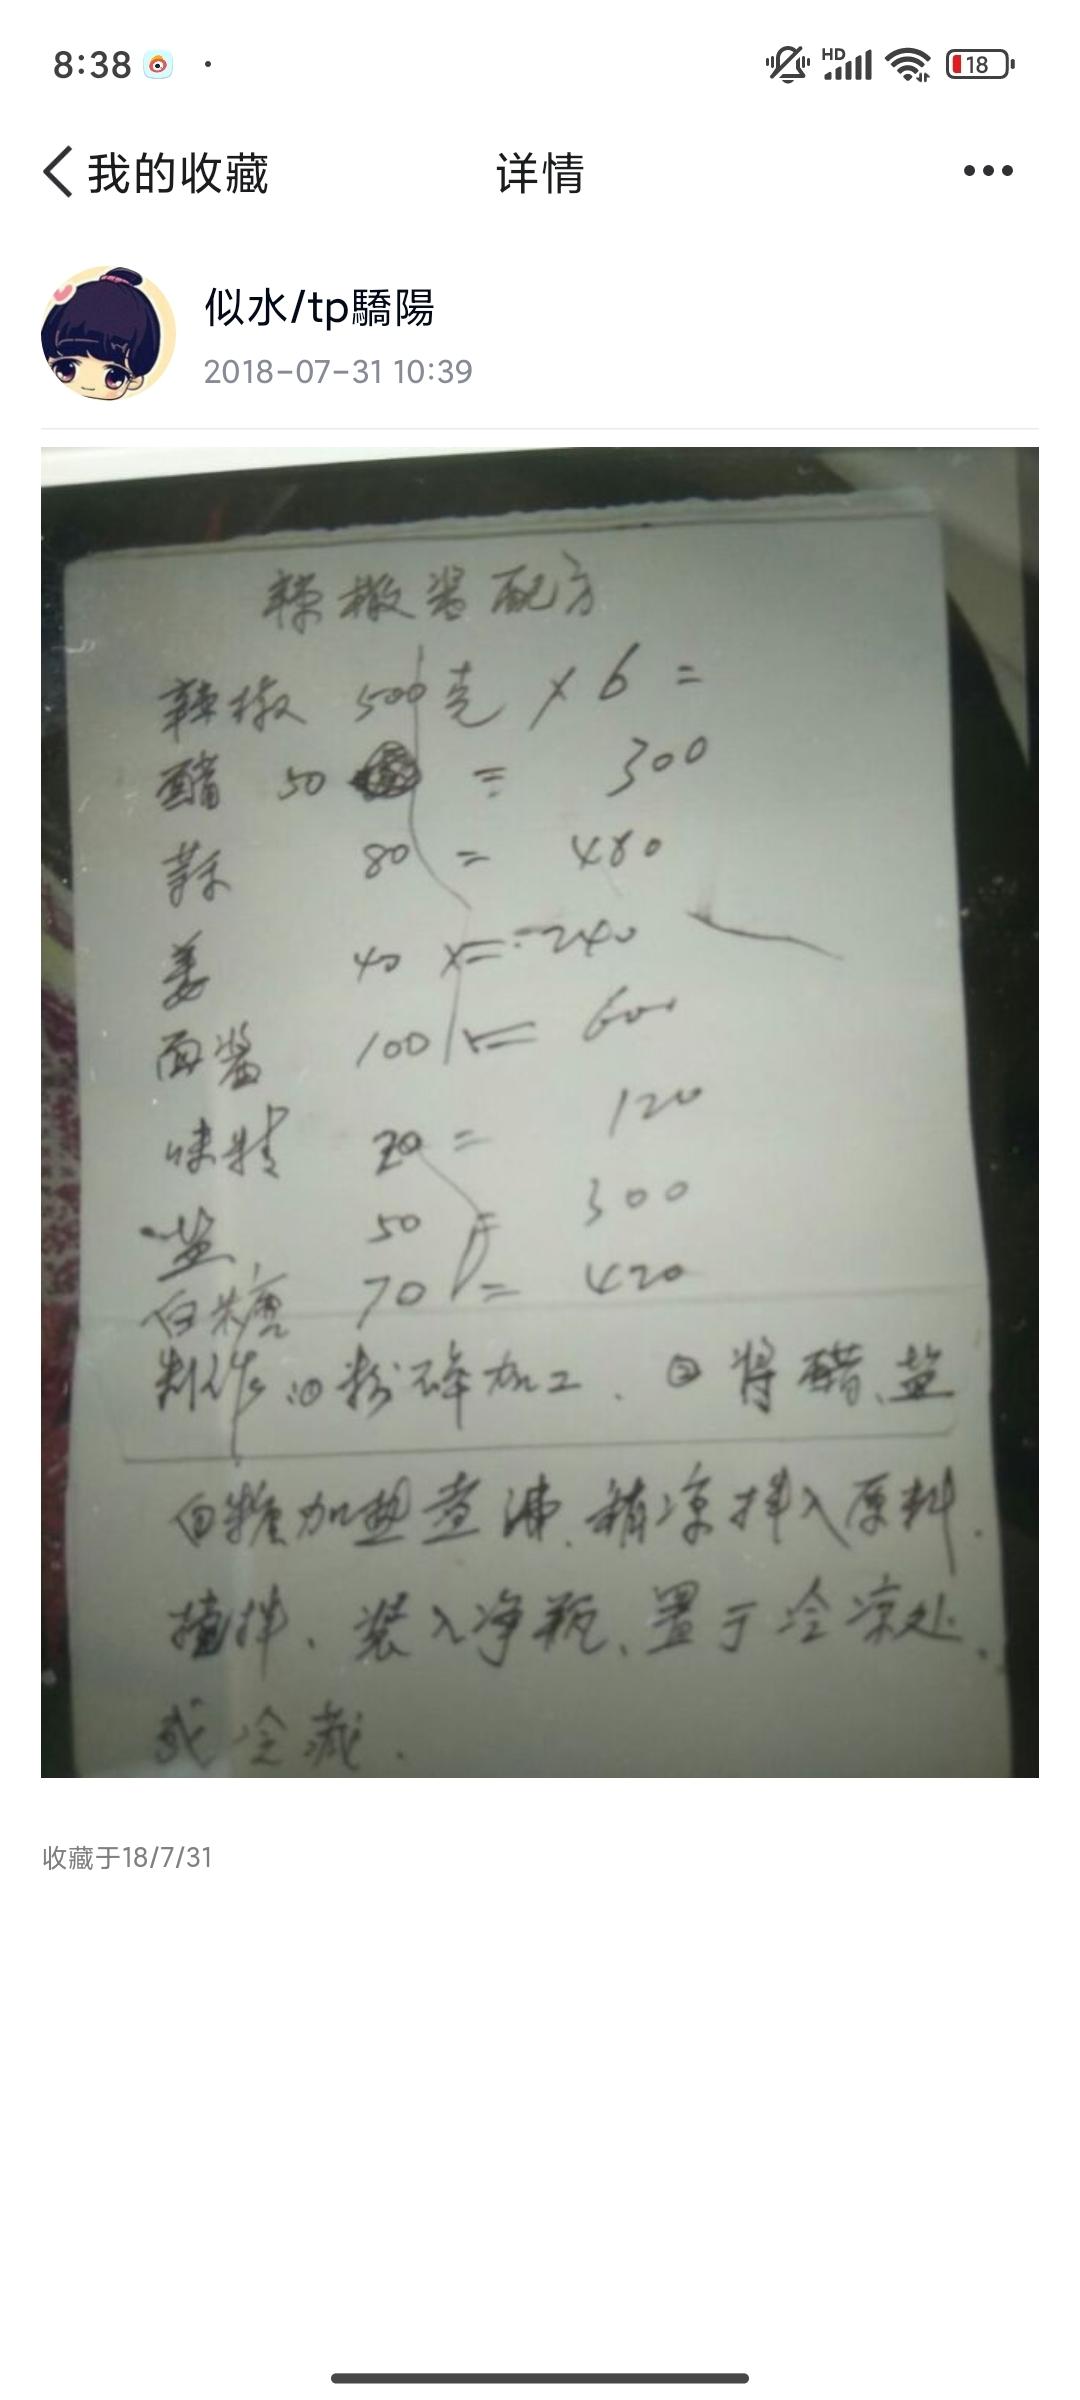 8:38
HD
18
我的收藏
详情
似水/tp驕陽
2018-07-31 10:39
辣椒酱配方
辣椒 500克 × 6 =
醋 50 = 300
蒜 80 = 480
姜 40 ×= 240
面酱 100 = 600
味精 20 = 120
盐 50 = 300
白糖 70 = 420
制作:①粉碎加工、②将醋、盐
白糖加热煮沸、稍凉拌入原料.
搅拌、装入净瓶、置于冷凉处、
或冷藏.
收藏于18/7/31